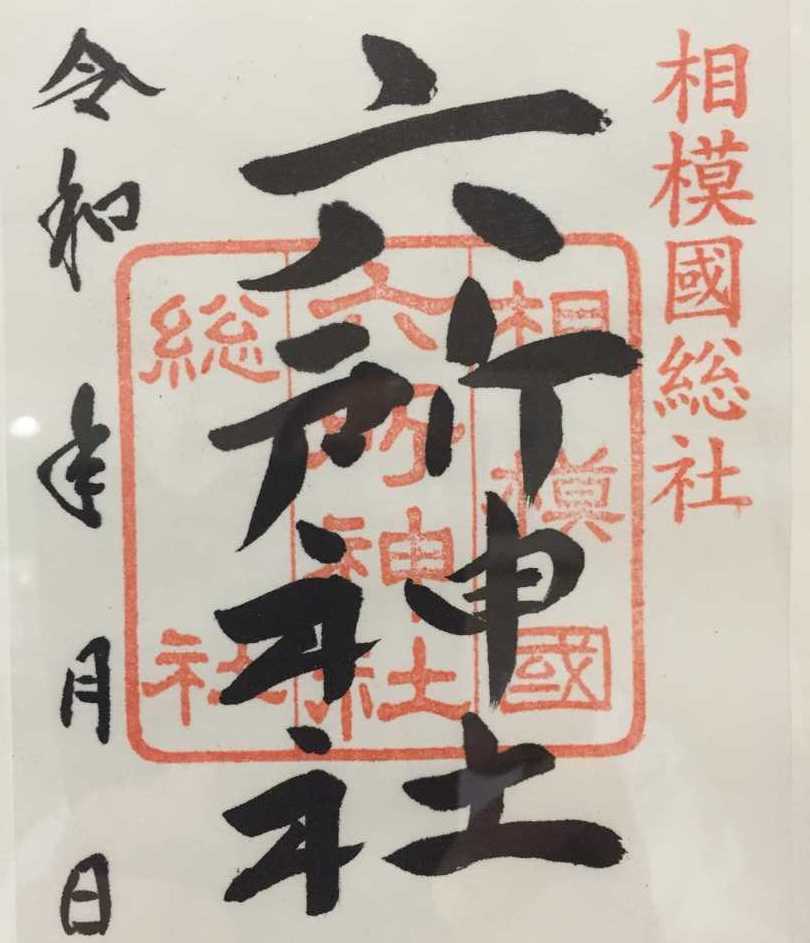 相模國総社
六所神社
相模國
六所神社
総社
令和 年 月 日